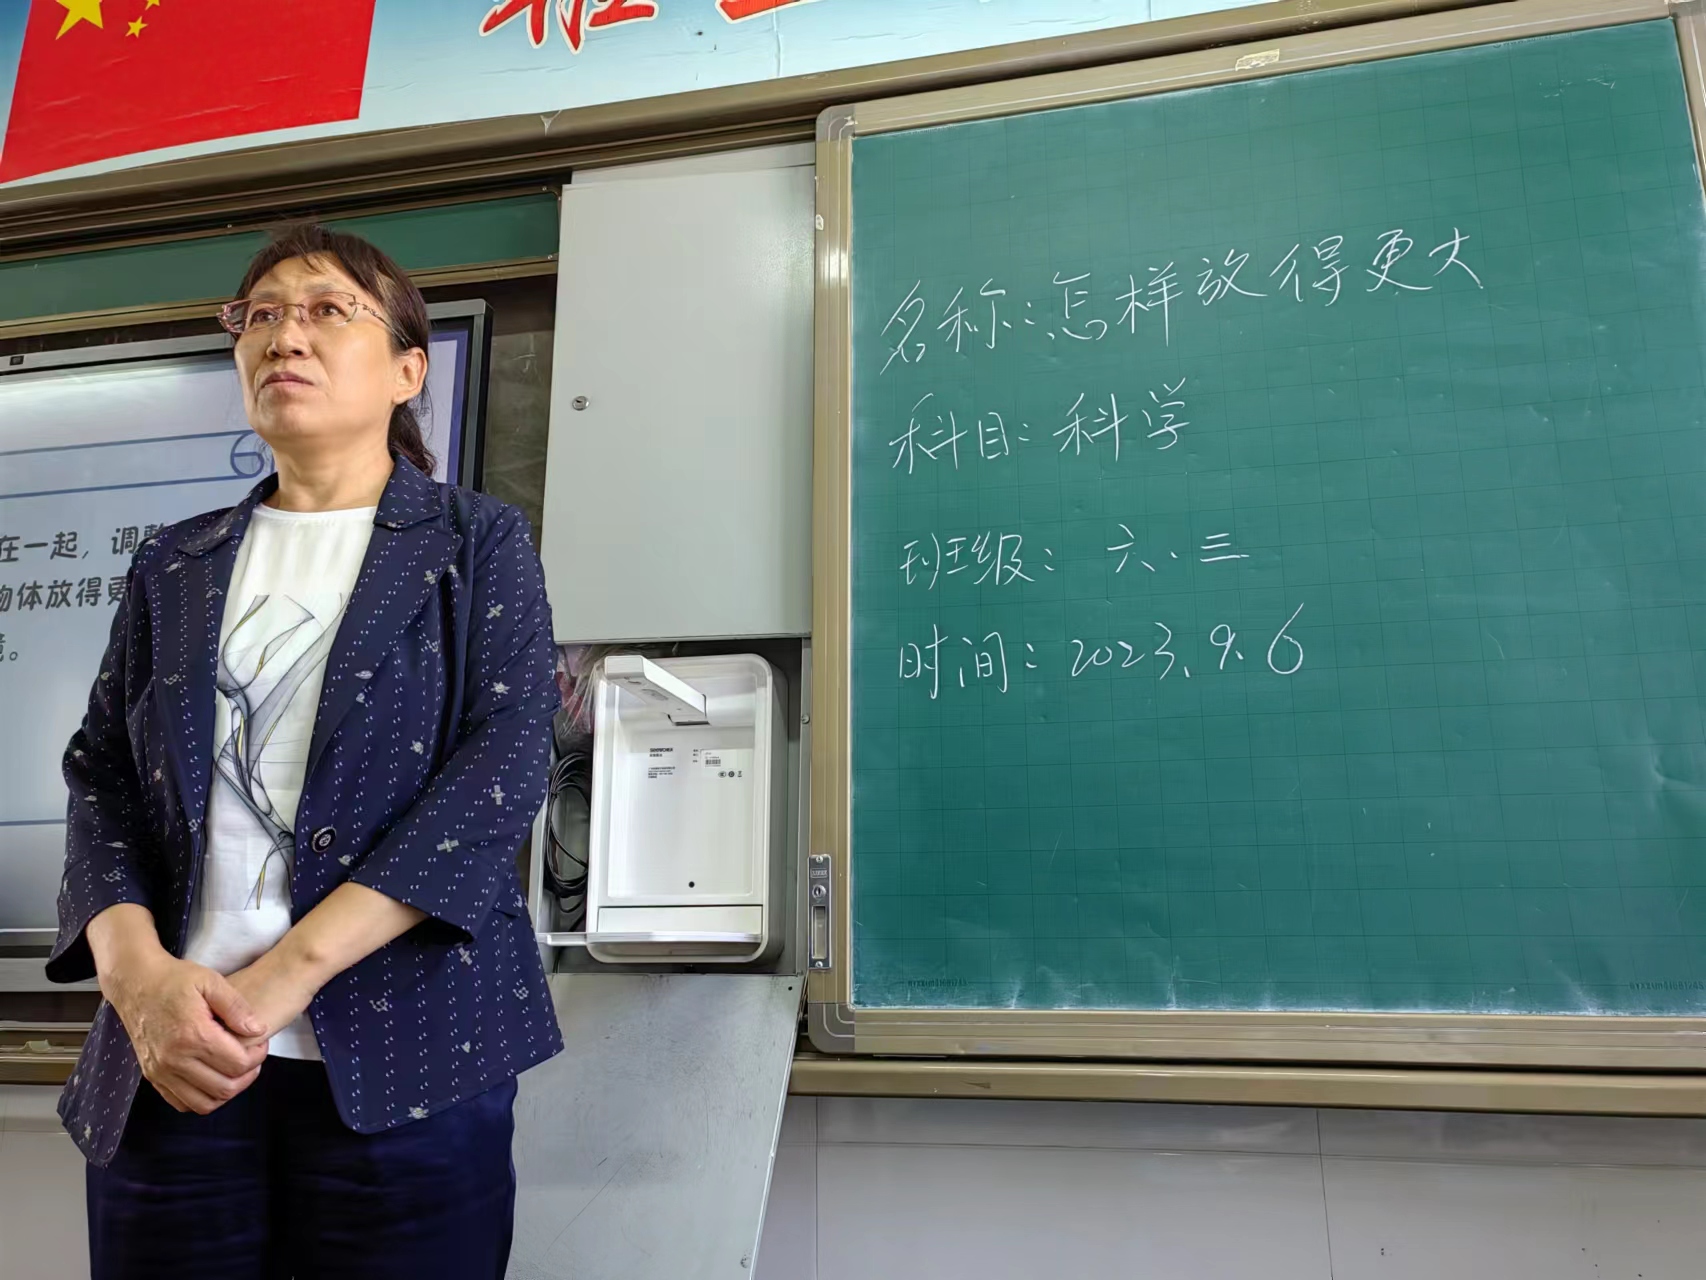 名称:怎样放得更大
科目:科学
班级:六.三
时间:2023.9.6
在一起,调整
物体放得更
镜。